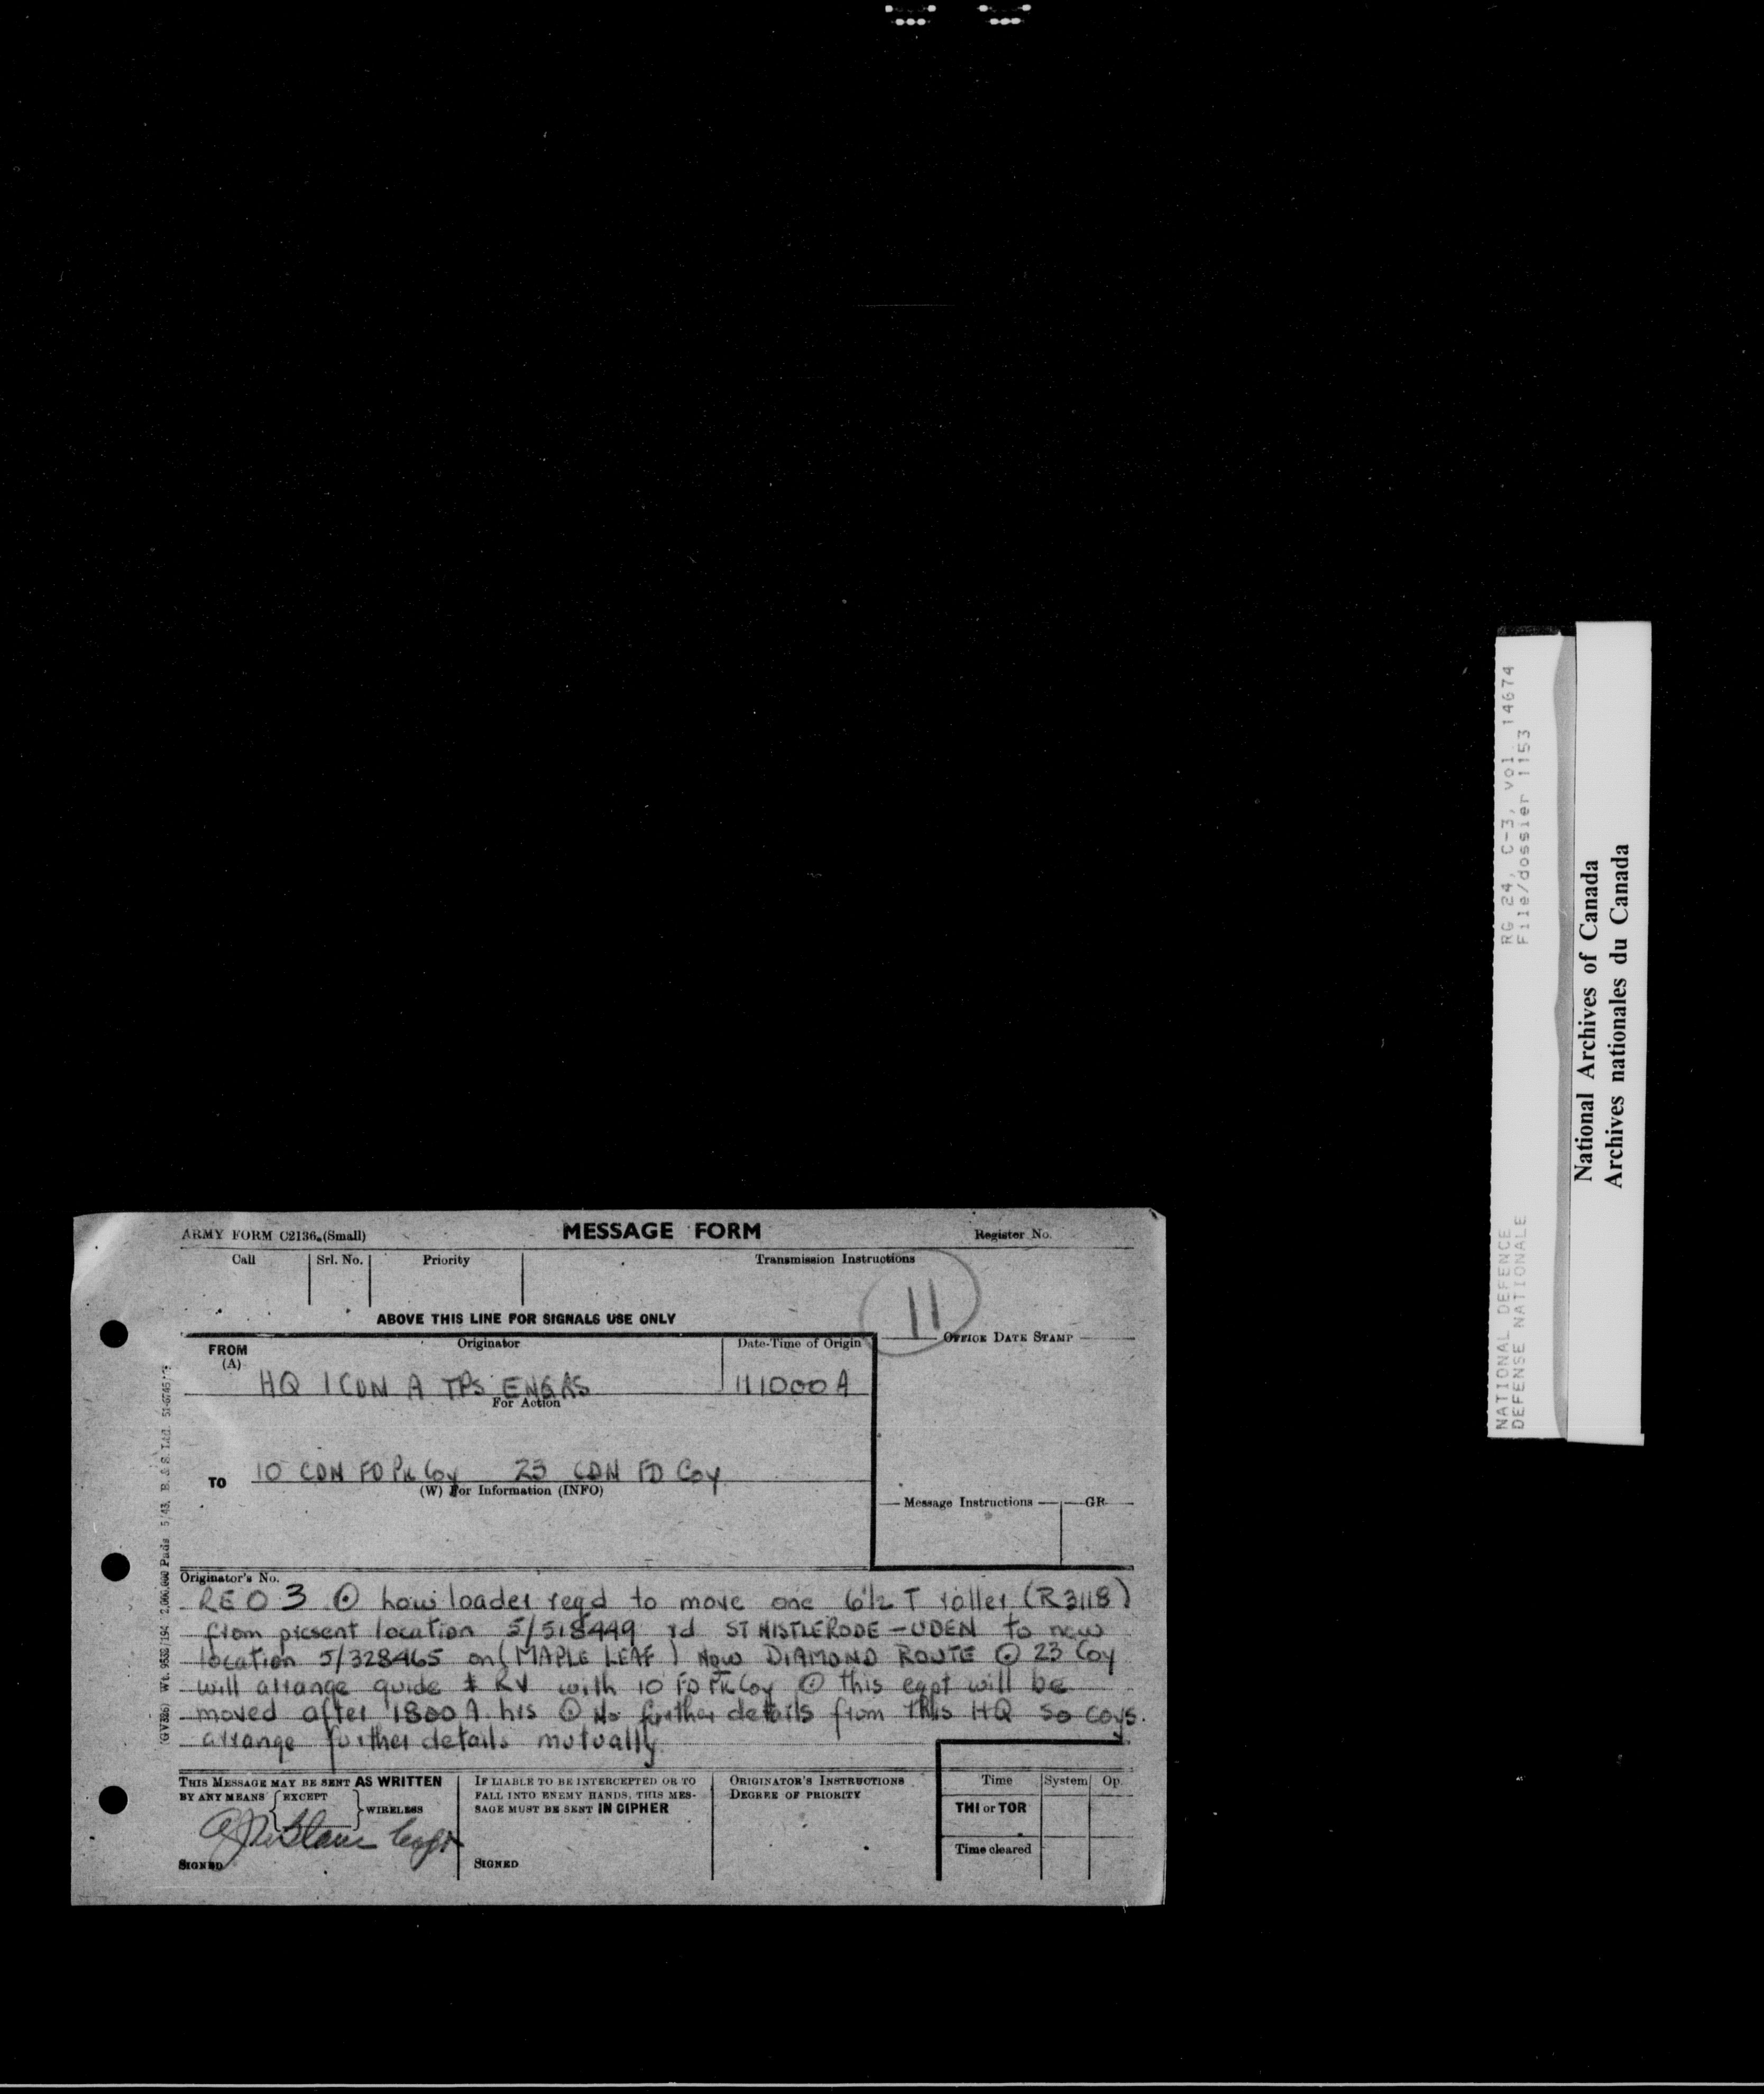 ARMY FORM C2136. (Small) MESSAGE FORM Register No.
Call Srl. No. Priority Transmission Instructions
11
ABOVE THIS LINE FOR SIGNALS USE ONLY
FROM (A) Originator Date-Time of Origin OFFICE DATE STAMP
HQ 1 CDN A TPS ENGRS 111000A
For Action
TO 10 CDN FD PK Coy 23 CDN FD Coy
(W) For Information (INFO)
Message Instructions GR
Originator's No.
REO 3 ⊙ low loader reqd to move one 6½ T roller (R3118)
from present location 5/518449 rd ST HISTLERODE - UDEN to new
location 5/328465 on (MAPLE LEAF) Now DIAMOND ROUTE ⊙ 23 Coy
will arrange guide & RV with 10 FD PK Coy ⊙ this eqpt will be
moved after 1800A hrs ⊙ No further details from this HQ so coys.
arrange further details mutually
THIS MESSAGE MAY BE SENT AS WRITTEN
BY ANY MEANS { EXCEPT } WIRELESS
Capt
SIGNED
IF LIABLE TO BE INTERCEPTED OR TO
FALL INTO ENEMY HANDS, THIS MES-
SAGE MUST BE SENT IN CIPHER
SIGNED
ORIGINATOR'S INSTRUCTIONS
DEGREE OF PRIORITY
Time System Op.
THI or TOR
Time cleared
2,000,000 Pads 5/43.
RG 24, C-3, vol. 14674
File/dossier 1153
NATIONAL DEFENCE
DEFENSE NATIONALE
National Archives of Canada
Archives nationales du Canada